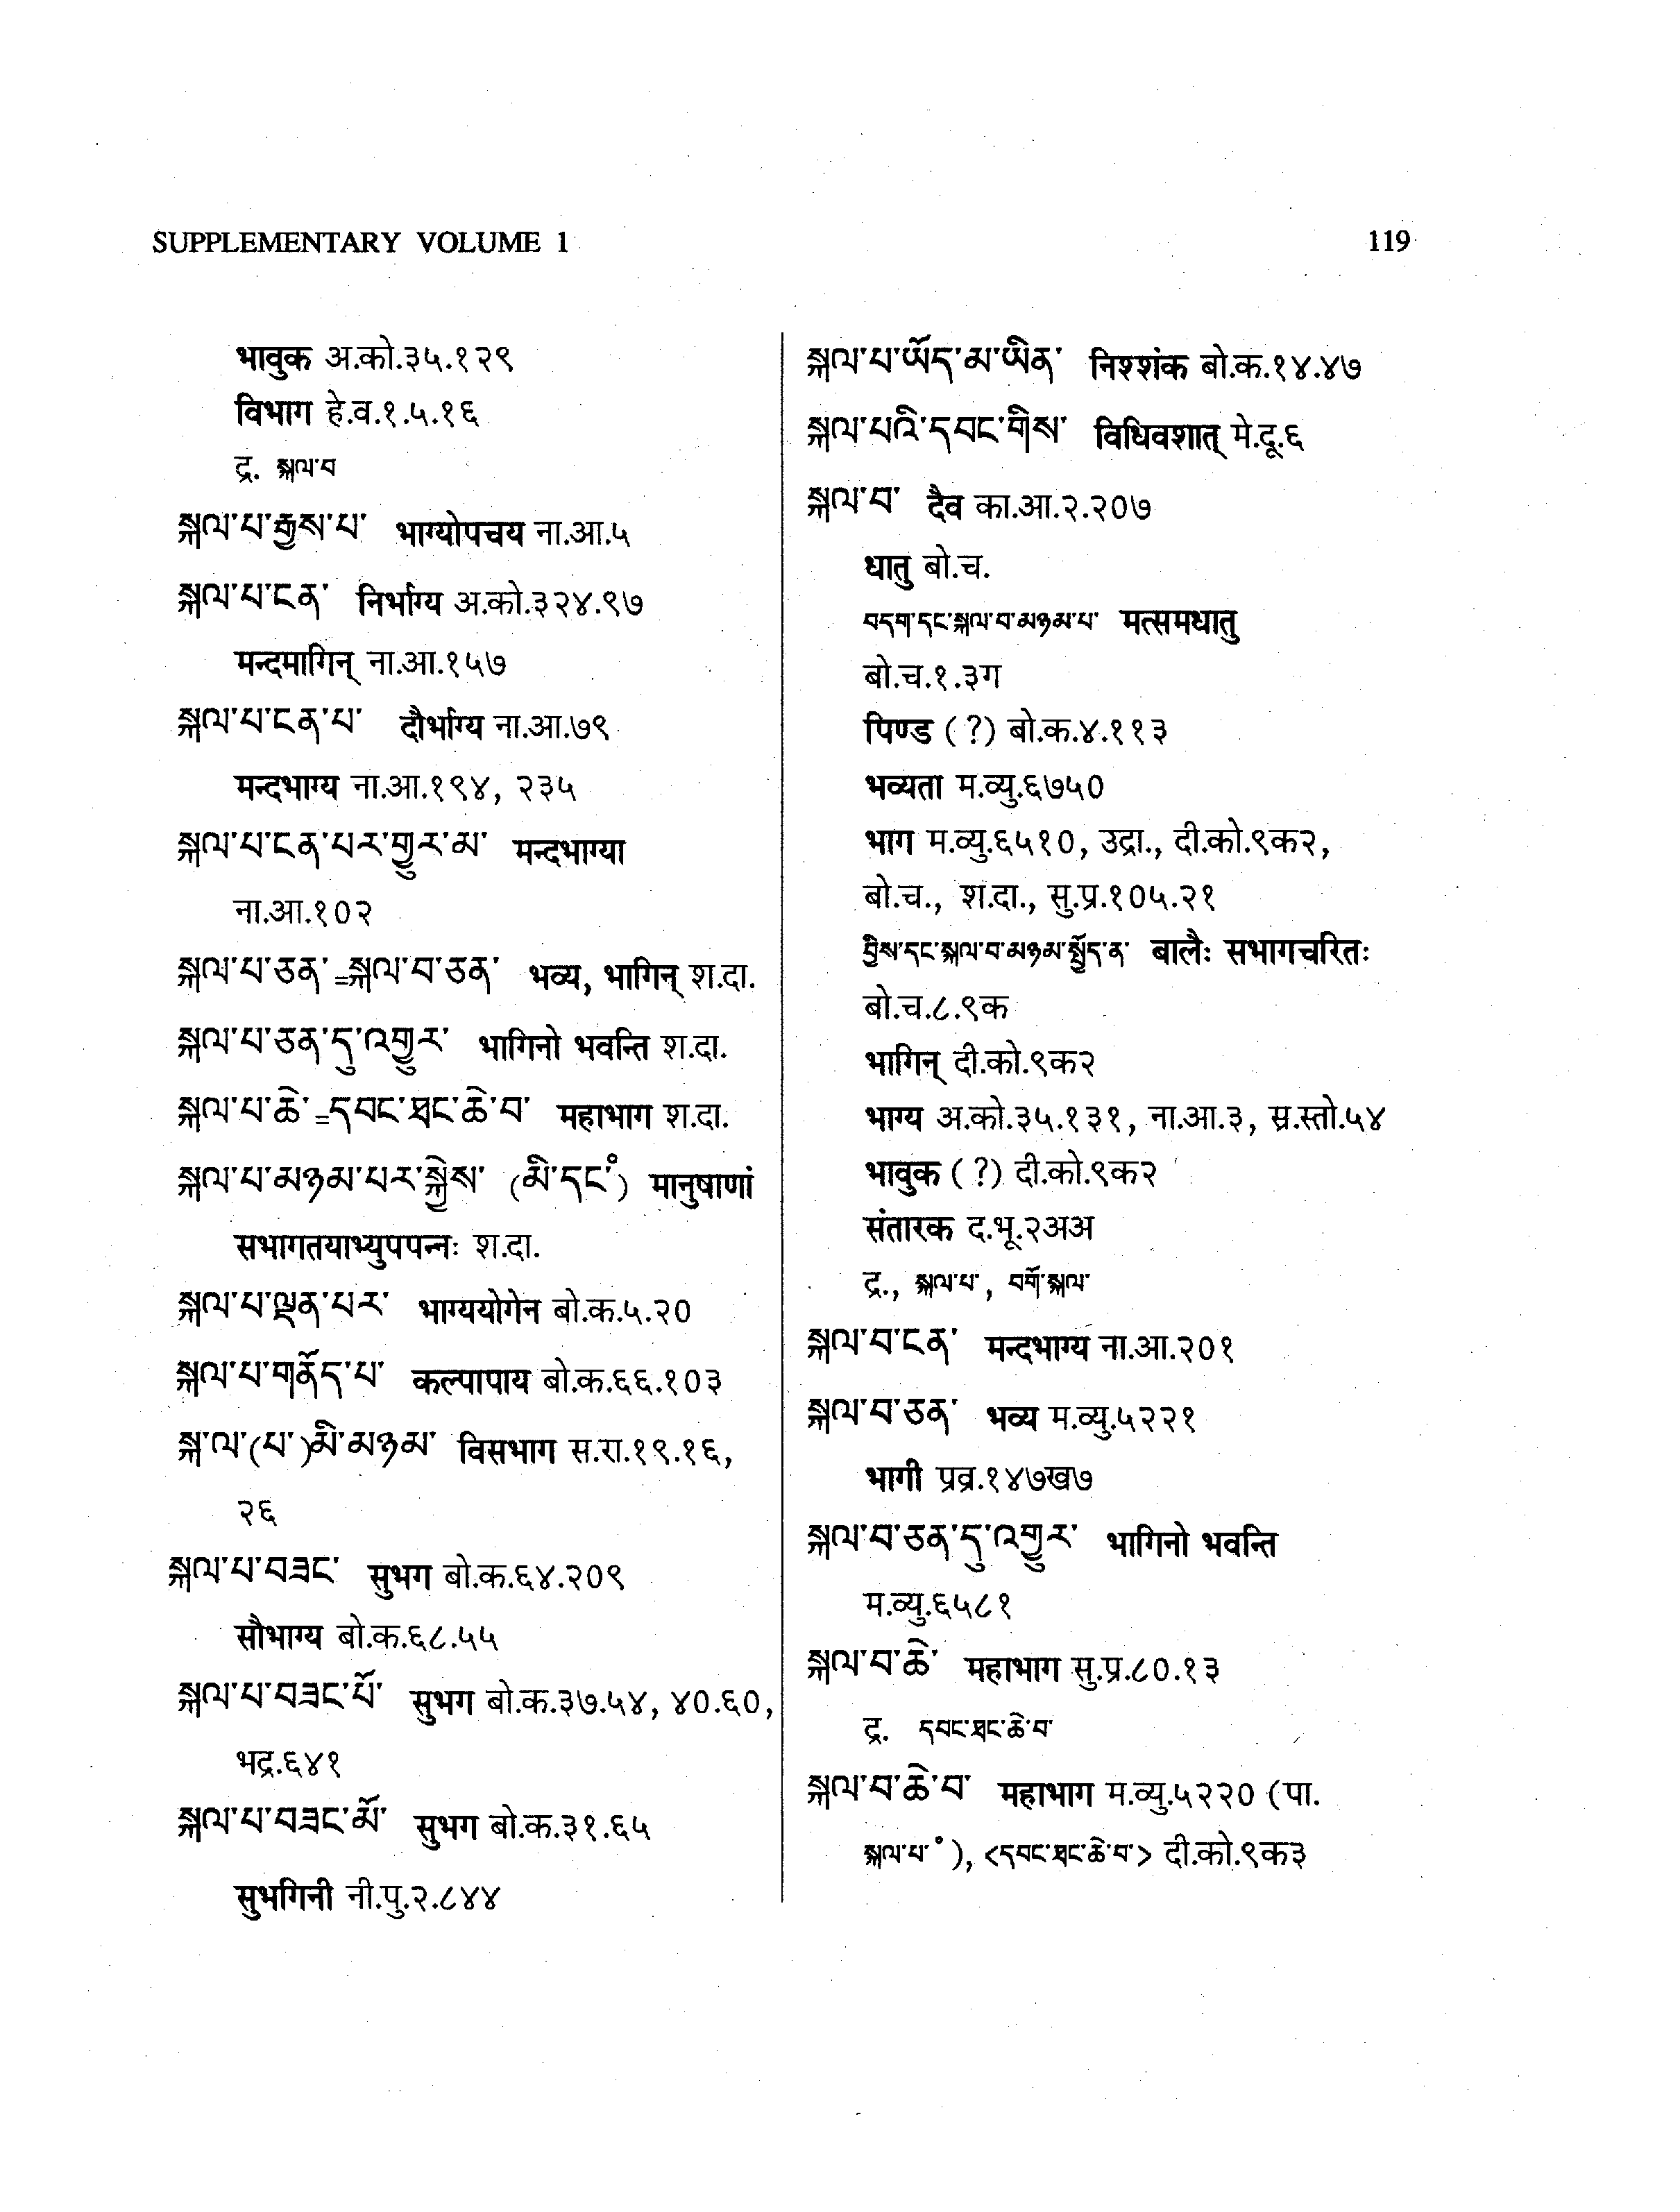 SUPPLEMENTARY VOLUME 1
119
भावुक अ.को.३५.१२९
विभाग हे.व.१.५.१६
द्र. སྐལ་བ
སྐལ་པ་རྒྱས་པ་ भाग्योपचय ना.आ.५
སྐལ་པ་ངན་ निर्भाग्य अ.को.३२४.९७
मन्दमागिन् ना.आ.१५७
སྐལ་པ་ངན་པ་ दौर्भाग्य ना.आ.७९
मन्दभाग्य ना.आ.१९४, २३५
སྐལ་པ་ངན་པར་གྱུར་མ་ मन्दभाग्या
ना.आ.१०२
སྐལ་པ་ཅན་=སྐལ་བ་ཅན་ भव्य, भागिन् श.दा.
སྐལ་པ་ཅན་དུ་འགྱུར་ भागिनो भवन्ति श.दा.
སྐལ་པ་ཆེ་=དབང་ཐང་ཆེ་བ་ महाभाग श.दा.
སྐལ་པ་མཉམ་པར་སྐྱེས་ (མི་དང་°) मानुषाणां
सभागतयाभ्युपपन्नः श.दा.
སྐལ་པ་ལྡན་པར་ भाग्ययोगेन बो.क.५.२०
སྐལ་པ་གནོད་པ་ कल्पापाय बो.क.६६.१०३
སྐ་ལ་(པ་)མི་མཉམ་ विसभाग स.रा.१९.१६,
२६
སྐལ་པ་བཟང་ सुभग बो.क.६४.२०९
सौभाग्य बो.क.६८.५५
སྐལ་པ་བཟང་པོ་ सुभग बो.क.३७.५४, ४०.६०,
भद्र.६४१
སྐལ་པ་བཟང་མོ་ सुभग बो.क.३१.६५
सुभगिनी नी.पु.२.८४४
སྐལ་པ་ཡོད་མ་ཡིན་ निश्शंक बो.क.१४.४७
སྐལ་པའི་དབང་གིས་ विधिवशात् मे.दू.६
སྐལ་བ་ दैव का.आ.२.२०७
धातु बो.च.
བདག་དང་སྐལ་བ་མཉམ་པ་ मत्समधातु
बो.च.१.३ग
पिण्ड (?) बो.क.४.११३
भव्यता म.व्यु.६७५०
भाग म.व्यु.६५१०, उद्रा., दी.को.९क२,
बो.च., श.दा., सु.प्र.१०५.२१
བྱིས་དང་སྐལ་བ་མཉམ་སྤྱོད་ན་ बालैः सभागचरितः
बो.च.८.९क
भागिन् दी.को.९क२
भाग्य अ.को.३५.१३१, ना.आ.३, स्र.स्तो.५४
भावुक (?) दी.को.९क२
संतारक द.भू.२अअ
द्र., སྐལ་པ་, བགོ་སྐལ་
སྐལ་བ་ངན་ मन्दभाग्य ना.आ.२०१
སྐལ་བ་ཅན་ भव्य म.व्यु.५२२१
भागी प्रव्र.१४७ख७
སྐལ་བ་ཅན་དུ་འགྱུར་ भागिनो भवन्ति
म.व्यु.६५८१
སྐལ་བ་ཆེ་ महाभाग सु.प्र.८०.१३
द्र. དབང་ཐང་ཆེ་བ་
སྐལ་བ་ཆེ་བ་ महाभाग म.व्यु.५२२० (पा.
སྐལ་པ་°), <དབང་ཐང་ཆེ་བ་> दी.को.९क३